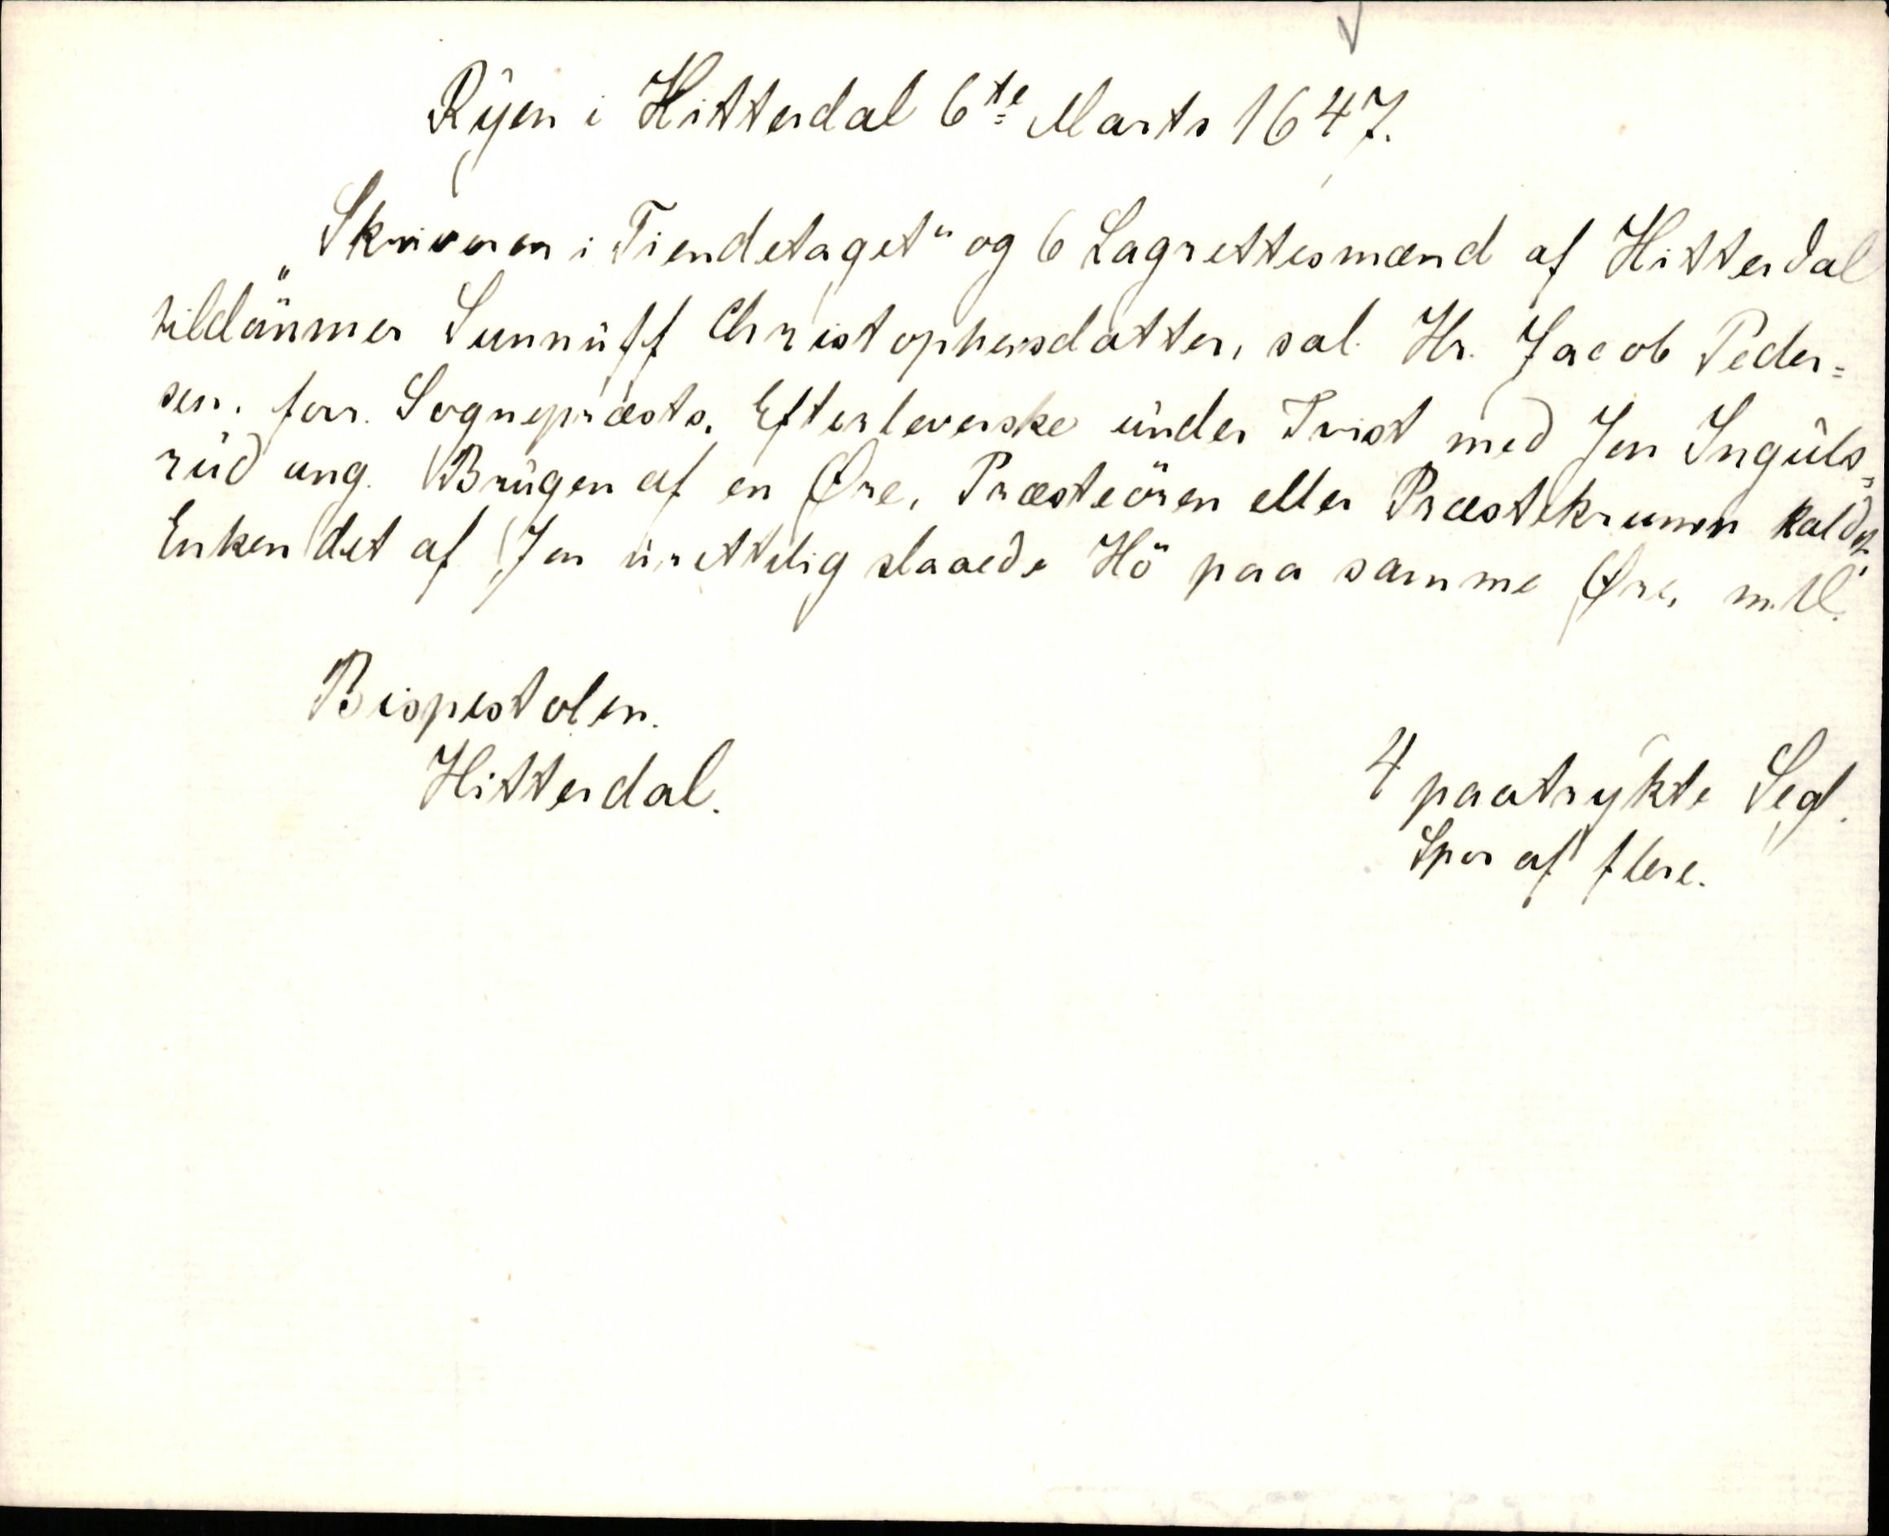 Ryen i Hitterdal 6te Marts 1647.
„Skriveren i Tiendelaget“ og 6 Lagrettesmænd af Hitterdal
tildömmer Sunnuff Christophersdatter, sal. Hr. Jacob Peder=
sen, forr. Sognepræsts, Efterleverske under Tvist med Jon Inguls=
rud ang. Brugen af en Øre, Præsteören eller Præstekruven kaldet,
Enken det af Jon urettelig slaaede Hö paa samme Øre, m. V.
Bispestolen.
Hitterdal.
4 paatrykte Segl.
Spor af flere.